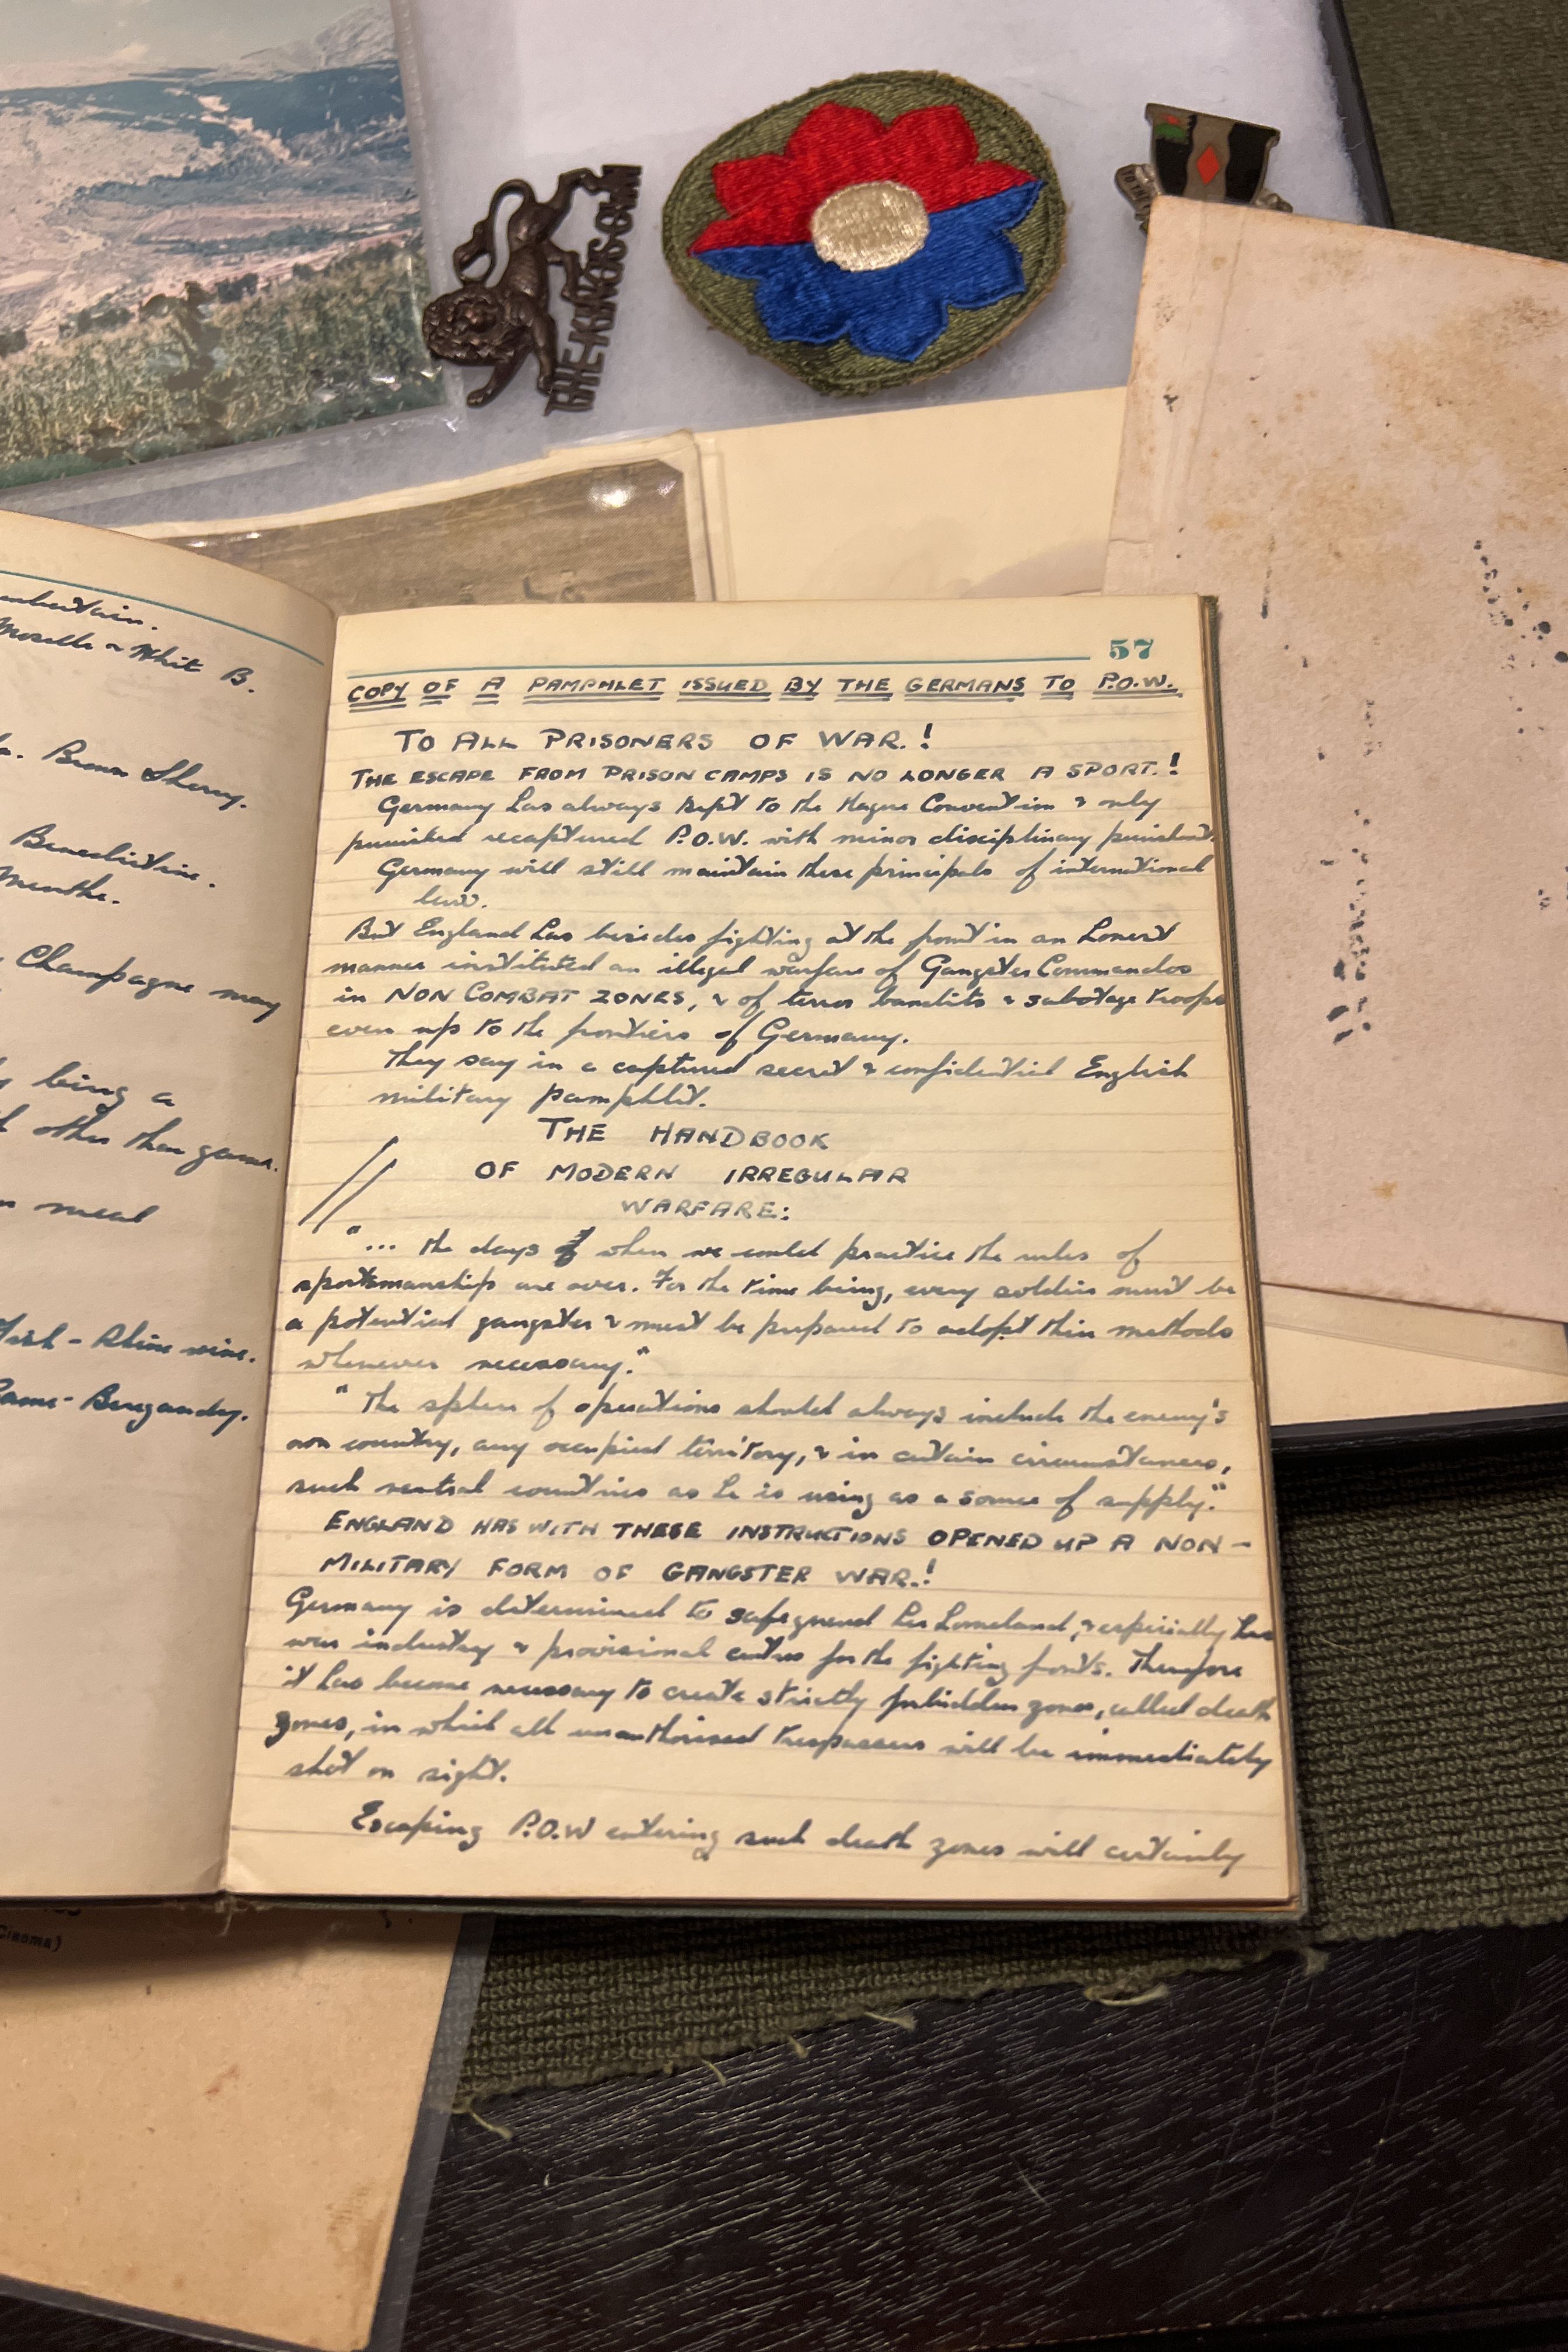 THE KINGS OWN
TO TH
mbertain.
Moselle ~ Whit B.
Brown Sherry.
Benedictine.
Menthe.
Champagne may
being a
other than game.
meal
Fish - Rhine wine.
Game - Burgandy.
57
COPY OF A PAMPHLET ISSUED BY THE GERMANS TO P.O.W.
TO ALL PRISONERS OF WAR.!
THE ESCAPE FROM PRISON CAMPS IS NO LONGER A SPORT.!
Germany has always kept to the Hague Convention & only
punished recaptured P.O.W. with minor disciplinary punishment.
Germany will still maintain these principals of international
law.
But England has besides fighting at the front in an honest
manner instituted an illegal warfare of Gangster Commandos
in NON COMBAT ZONES, & of terror bandits & sabotage troops
even up to the frontiers of Germany.
They say in a captured secret & confidential English
military pamphlet.
THE HANDBOOK
OF MODERN IRREGULAR
WARFARE:
"... the days of when we could practice the rules of
sportsmanship are over. For the time being, every soldier must be
a potential gangster & must be prepared to adopt their methods
whenever necessary."
"The sphere of operations should always include the enemy's
own country, any occupied territory, & in certain circumstances,
such neutral countries as he is using as a source of supply."
ENGLAND HAS WITH THESE INSTRUCTIONS OPENED UP A NON-
MILITARY FORM OF GANGSTER WAR.!
Germany is determined to safeguard her homeland, & especially her
war industry & provisional centres for the fighting fronts. Therefore
it has become necessary to create strictly forbidden zones, called death
zones, in which all unauthorised trespassers will be immediately
shot on sight.
Escaping P.O.W entering such death zones will certainly
Cinema)